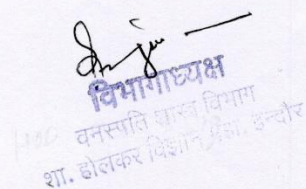 विभागाध्यक्ष
HOD वनस्पति शास्त्र विभाग
शा. होलकर विज्ञान महा. इन्दौर